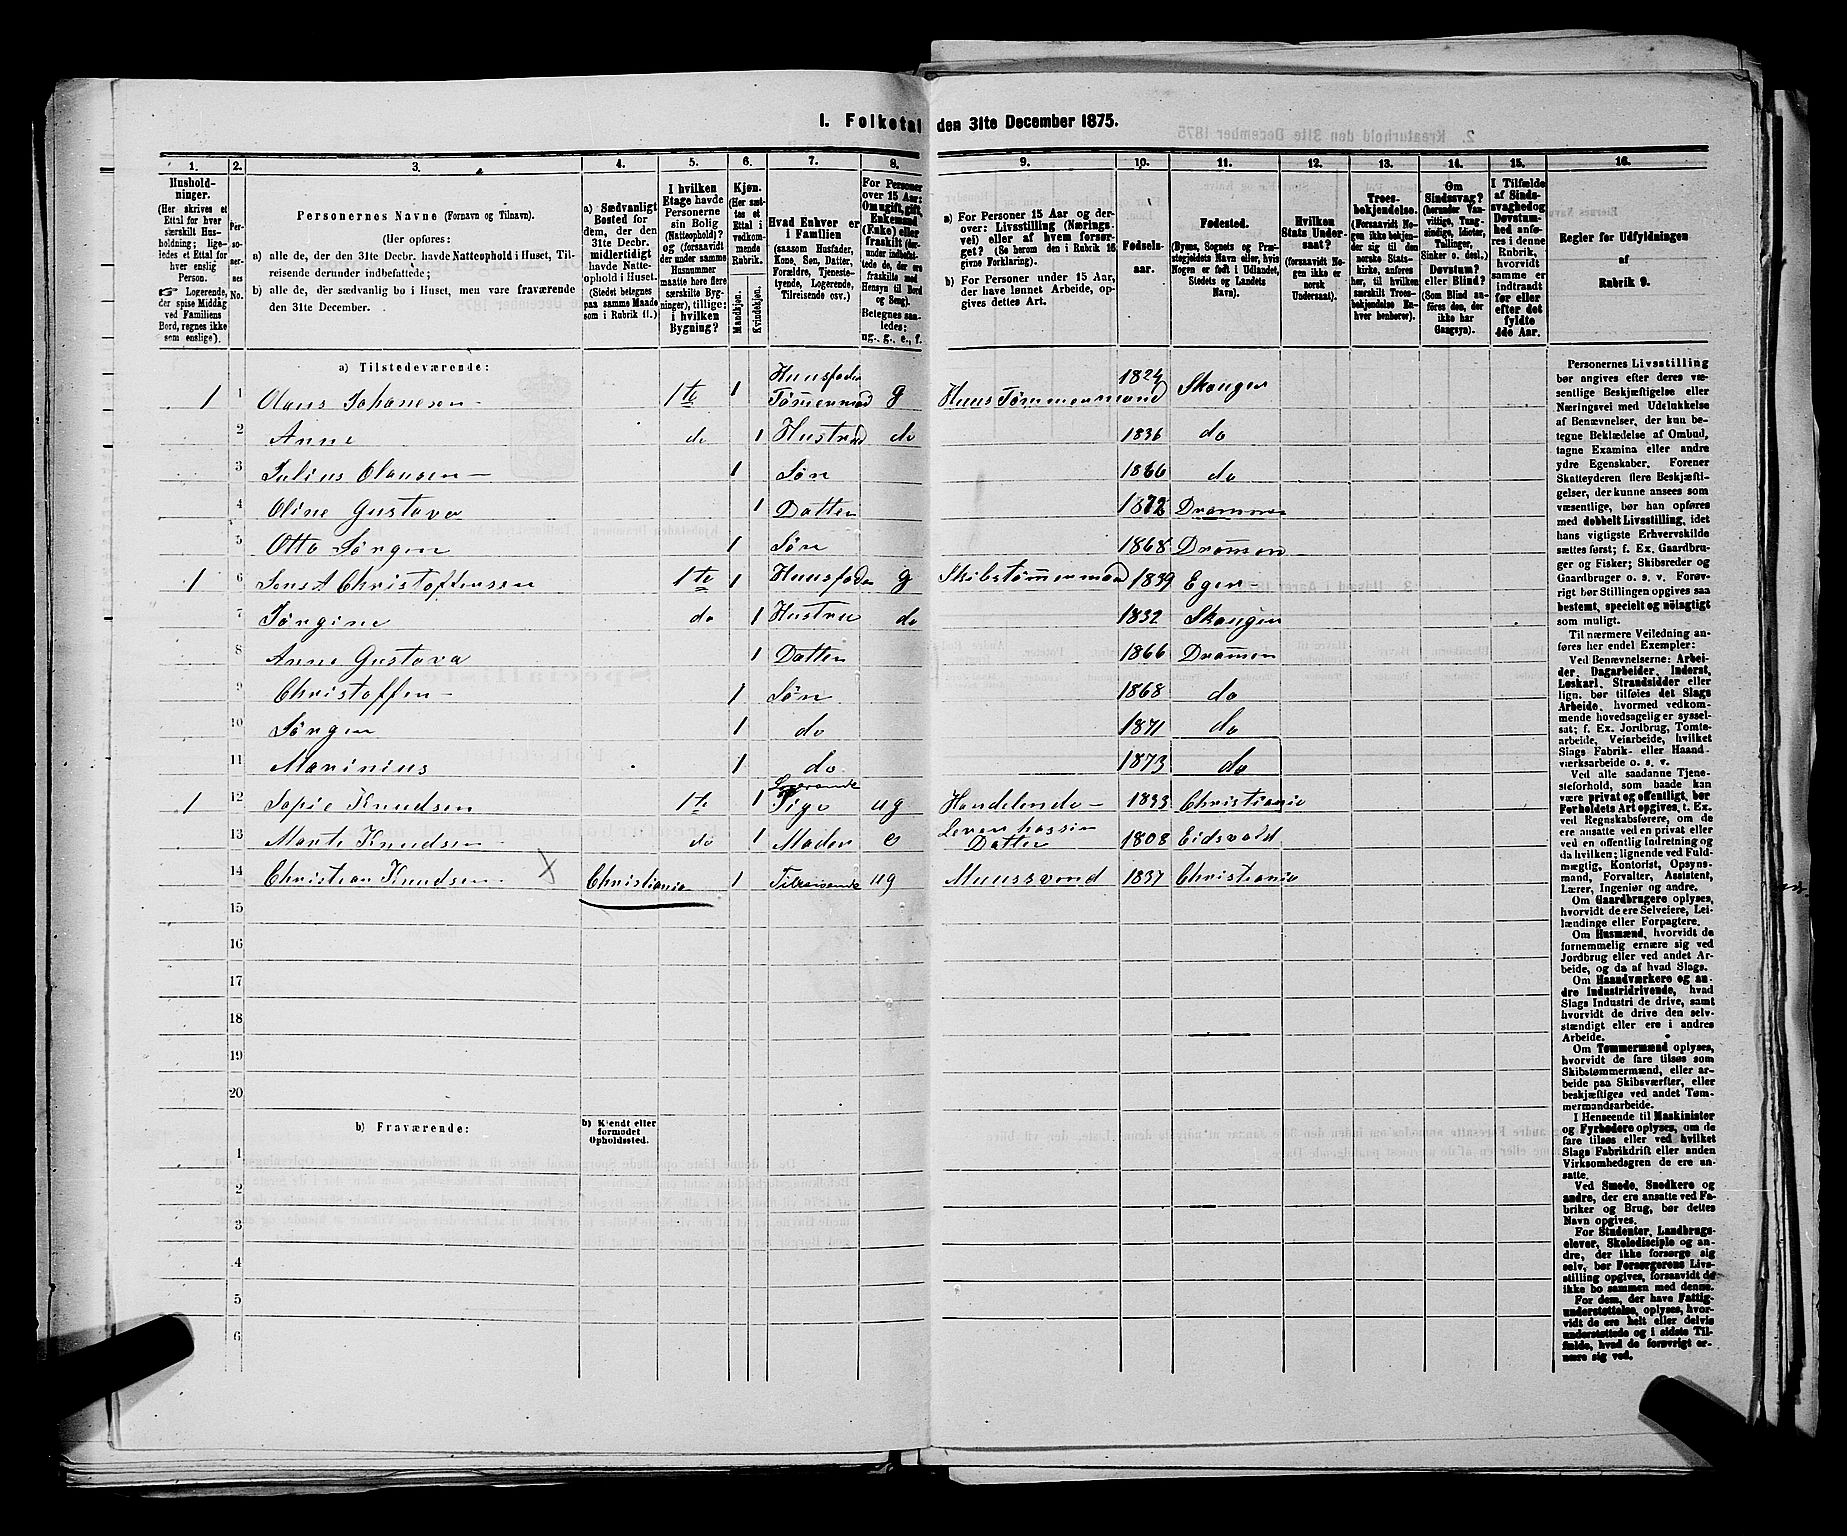 1. Folketal den 31te December 1875.
1. 2. 3. 4. 5. 6. 7. 8. 9. 10. 11. 12. 13. 14. 15. 16.
Husholdninger.
(Her skrives et Ettal for hver særskilt Husholdning; ligeledes et Ettal for hver enslig Person.
☞ Logerende, der spise Middag ved Familiens Bord, regnes ikke som enslige).
Personernes No.
Personernes Navne (Fornavn og Tilnavn).
(Her opføres:
a) alle de, der den 31te Decbr. havde Natteophold i Huset, Tilreisende derunder indbefattede;
b) alle de, der sædvanlig bo i Huset, men vare fraværende den 31te December.
a) Sædvanligt Bosted for dem, der den 31te Decbr. midlertidigt havde Natteophold i Huset. (Stedet betegnes paa samme Maade som i Rubrik 11.)
I hvilken Etage havde Personerne sin Bolig (Natteophold)? og (forsaavidt der under samme Husnummer maatte høre flere særskilte Bygninger), tillige: i hvilken Bygning?
Kjøn. (Her sættes et Ettal i vedkommende Rubrik.
Mandkjøn. Kvindekjøn.
Hvad Enhver er i Familien
(saasom Husfader, Kone, Søn, Datter, Forældre, Tjenestetyende, Logerende, Tilreisende osv.)
For Personer over 15 Aar: Om ugift, gift, Enkemand (Enke) eller fraskilt
Betegnes saaledes: ug., g., e., f.
a) For Personer 15 Aar og derover: Livsstilling (Næringsvei) eller af hvem forsørget? (Se herom den i Rubrik 16 givne Forklaring).
b) For Personer under 15 Aar, der have lønnet Arbeide, opgives dettes Art.
Fødselsaar.
Fødested.
(Byens, Sognets og Præstegjeldets Navn eller, hvis Nogen er født i Udlandet, Stedets og Landets Navn).
Hvilken Stats Undersaat?
(forsaavidt Nogen ikke er norsk Undersaat).
Troesbekjendelse.
(Forsaavidt Nogen ikke bekjender sig til den norske Statskirke, anføres her, til hvilken særskilt Troesbekjendelse Enhver henhører).
Om Sindssvag?
Døvstum? eller Blind?
(Som Blind anføres den, der ikke har Gangsyn).
I Tilfælde af Sindssvaghed og Døvstumhed anføres i denne Rubrik, hvorvidt samme er indtraadt før eller efter det fyldte 4de Aar.
Regler for Udfyldningen af Rubrik 9.
a) Tilstedeværende:
1 1 Olaus Johanesen 1te 1 Huusfader Tømermad g Huus Tømmermand 1824 Skauger
2 Anne do 1 Hustru do 1836 do
3 Julius Olausen 1 Søn 1866 do
4 Oline Gustava 1 Datter 1872 Drammen
5 Otto Jørgen 1 Søn 1868 Dramen
1 6 Jens A Christoffersen 1te 1 Huusfader g Skibstømermand 1839 Eger
7 Jørgine do 1 Hustru do 1832 Skauger
8 Anne Gustava 1 Datter 1866 Dramen
9 Christoffer 1 Søn 1868 do
10 Jørgen 1 do 1871 do
11 Marinius 1 do 1873 do
1 12 Sofie Knudsen 1te 1 Logerende Pige ug Handelende 1833 Christiania
13 Marte Knudsen do 1 Moder e Lever hos sin Datter 1808 Eidsvold
14 Christian Knudsen X Christiania 1 Tilreisende ug Muursvend 1837 Christiania
15
16
17
18
19
20
b) Fraværende:
b) Kjendt eller formodet Opholdssted.
1
2
3
4
5
6
Personernes Livsstilling bør angives efter deres væsentlige Beskjæftigelse eller Næringsvei med Udelukkelse af Benævnelser, der kun betegne Beklædelse af Ombud, tagne Examina eller andre ydre Egenskaber. Forener Skatteyderen flere Beskjæftigelser, der kunne ansees som væsentlige, bør han opføres med dobbelt Livsstilling, idet hans vigtigste Erhvervskilde sættes først; f. Ex. Gaardbruger og Fisker; Skibsreder og Gaardbruger o. s. v. Forøvrigt bør Stillingen opgives saa bestemt, specielt og nøiagtigt som muligt.
Til nærmere Veiledning anføres her endel Exempler:
Ved Benævnelserne: Arbeider, Dagarbeider, Inderst, Løskarl, Strandsidder eller lign. bør tilføies det Slags Arbeide, hvormed vedkommende hovedsagelig er sysselsat; f. Ex. Jordbrug, Tomtearbeide, Veiarbeide, hvilket Slags Fabrik- eller Haandværksarbeide o. s. v.
Ved alle saadanne Tjenesteforhold, som baade kan være privat og offentligt, bør Forholdets Art opgives, t. Ex. ved Regnskabsførere, om de ere ansatte ved en privat eller ved en offentlig Indretning og da hvilken; lignende ved Fuldmægtig, Kontorist, Opsynsmand, Forvalter, Assistent, Lærer, Ingeniør og andre.
Om Gaardbrugere oplyses, hvorvidt de ere Selveiere, Leilændinge eller Forpagtere.
Om Husmænd, hvorvidt de fornemmelig ernære sig ved Jordbrug eller ved andet Arbeide, og da af hvad Slags.
Om Haandværkere og andre Industridrivende, hvad Slags Industri de drive, samt hvorvidt de drive den selvstændigt eller ere i andres Arbeide.
Om Tømmermænd oplyses, hvorvidt de fare tilsøs som Skibstømmermænd, eller arbeide paa Skibsværfter, eller beskjæftiges ved andet Tømmermandsarbeide.
I Henseende til Maskinister og Fyrbødere oplyses, om de fare tilsøs eller ved hvilket Slags Fabrikdrift eller anden Virksomhedsgren de ere ansatte.
Ved Smede, Snedkere og andre, der ere ansatte ved Fabriker og Brug, bør dettes Navn opgives.
For Studenter, Landbrugselever, Skoledisciple og andre, der ikke forsørge sig selv, bør Forsørgerens Livsstilling opgives, forsaavidt de ikke bo sammen med denne.
For dem, der have Fattigunderstøttelse, oplyses, hvorvidt de ere helt eller delvis understøttede og i sidste Tilfælde, hvad de forøvrigt ernære sig ved.